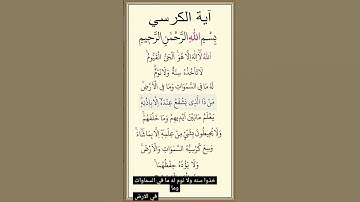 آية الكرسي
بِسْمِ اللهِ الرَّحْمٰنِ الرَّحِيمِ
اللهُ لَا إِلٰهَ إِلَّا هُوَ الْحَيُّ الْقَيُّومُ
لَا تَأْخُذُهُ سِنَةٌ وَلَا نَوْمٌ
لَهُ مَا فِي السَّمَوَاتِ وَمَا فِي الْأَرْضِ
مَنْ ذَا الَّذِي يَشْفَعُ عِنْدَهُ إِلَّا بِإِذْنِهِ
يَعْلَمُ مَا بَيْنَ أَيْدِيهِمْ وَمَا خَلْفَهُمْ
وَلَا يُحِيطُونَ بِشَيْءٍ مِنْ عِلْمِهِ إِلَّا بِمَا شَاءَ
وَسِعَ كُرْسِيُّهُ السَّمَوَاتِ وَالْأَرْضَ
وَلَا يَؤُدُهُ حِفْظُهُمَا
خذوا سنه ولا نوم له ما في السماوات
وما
في الارض